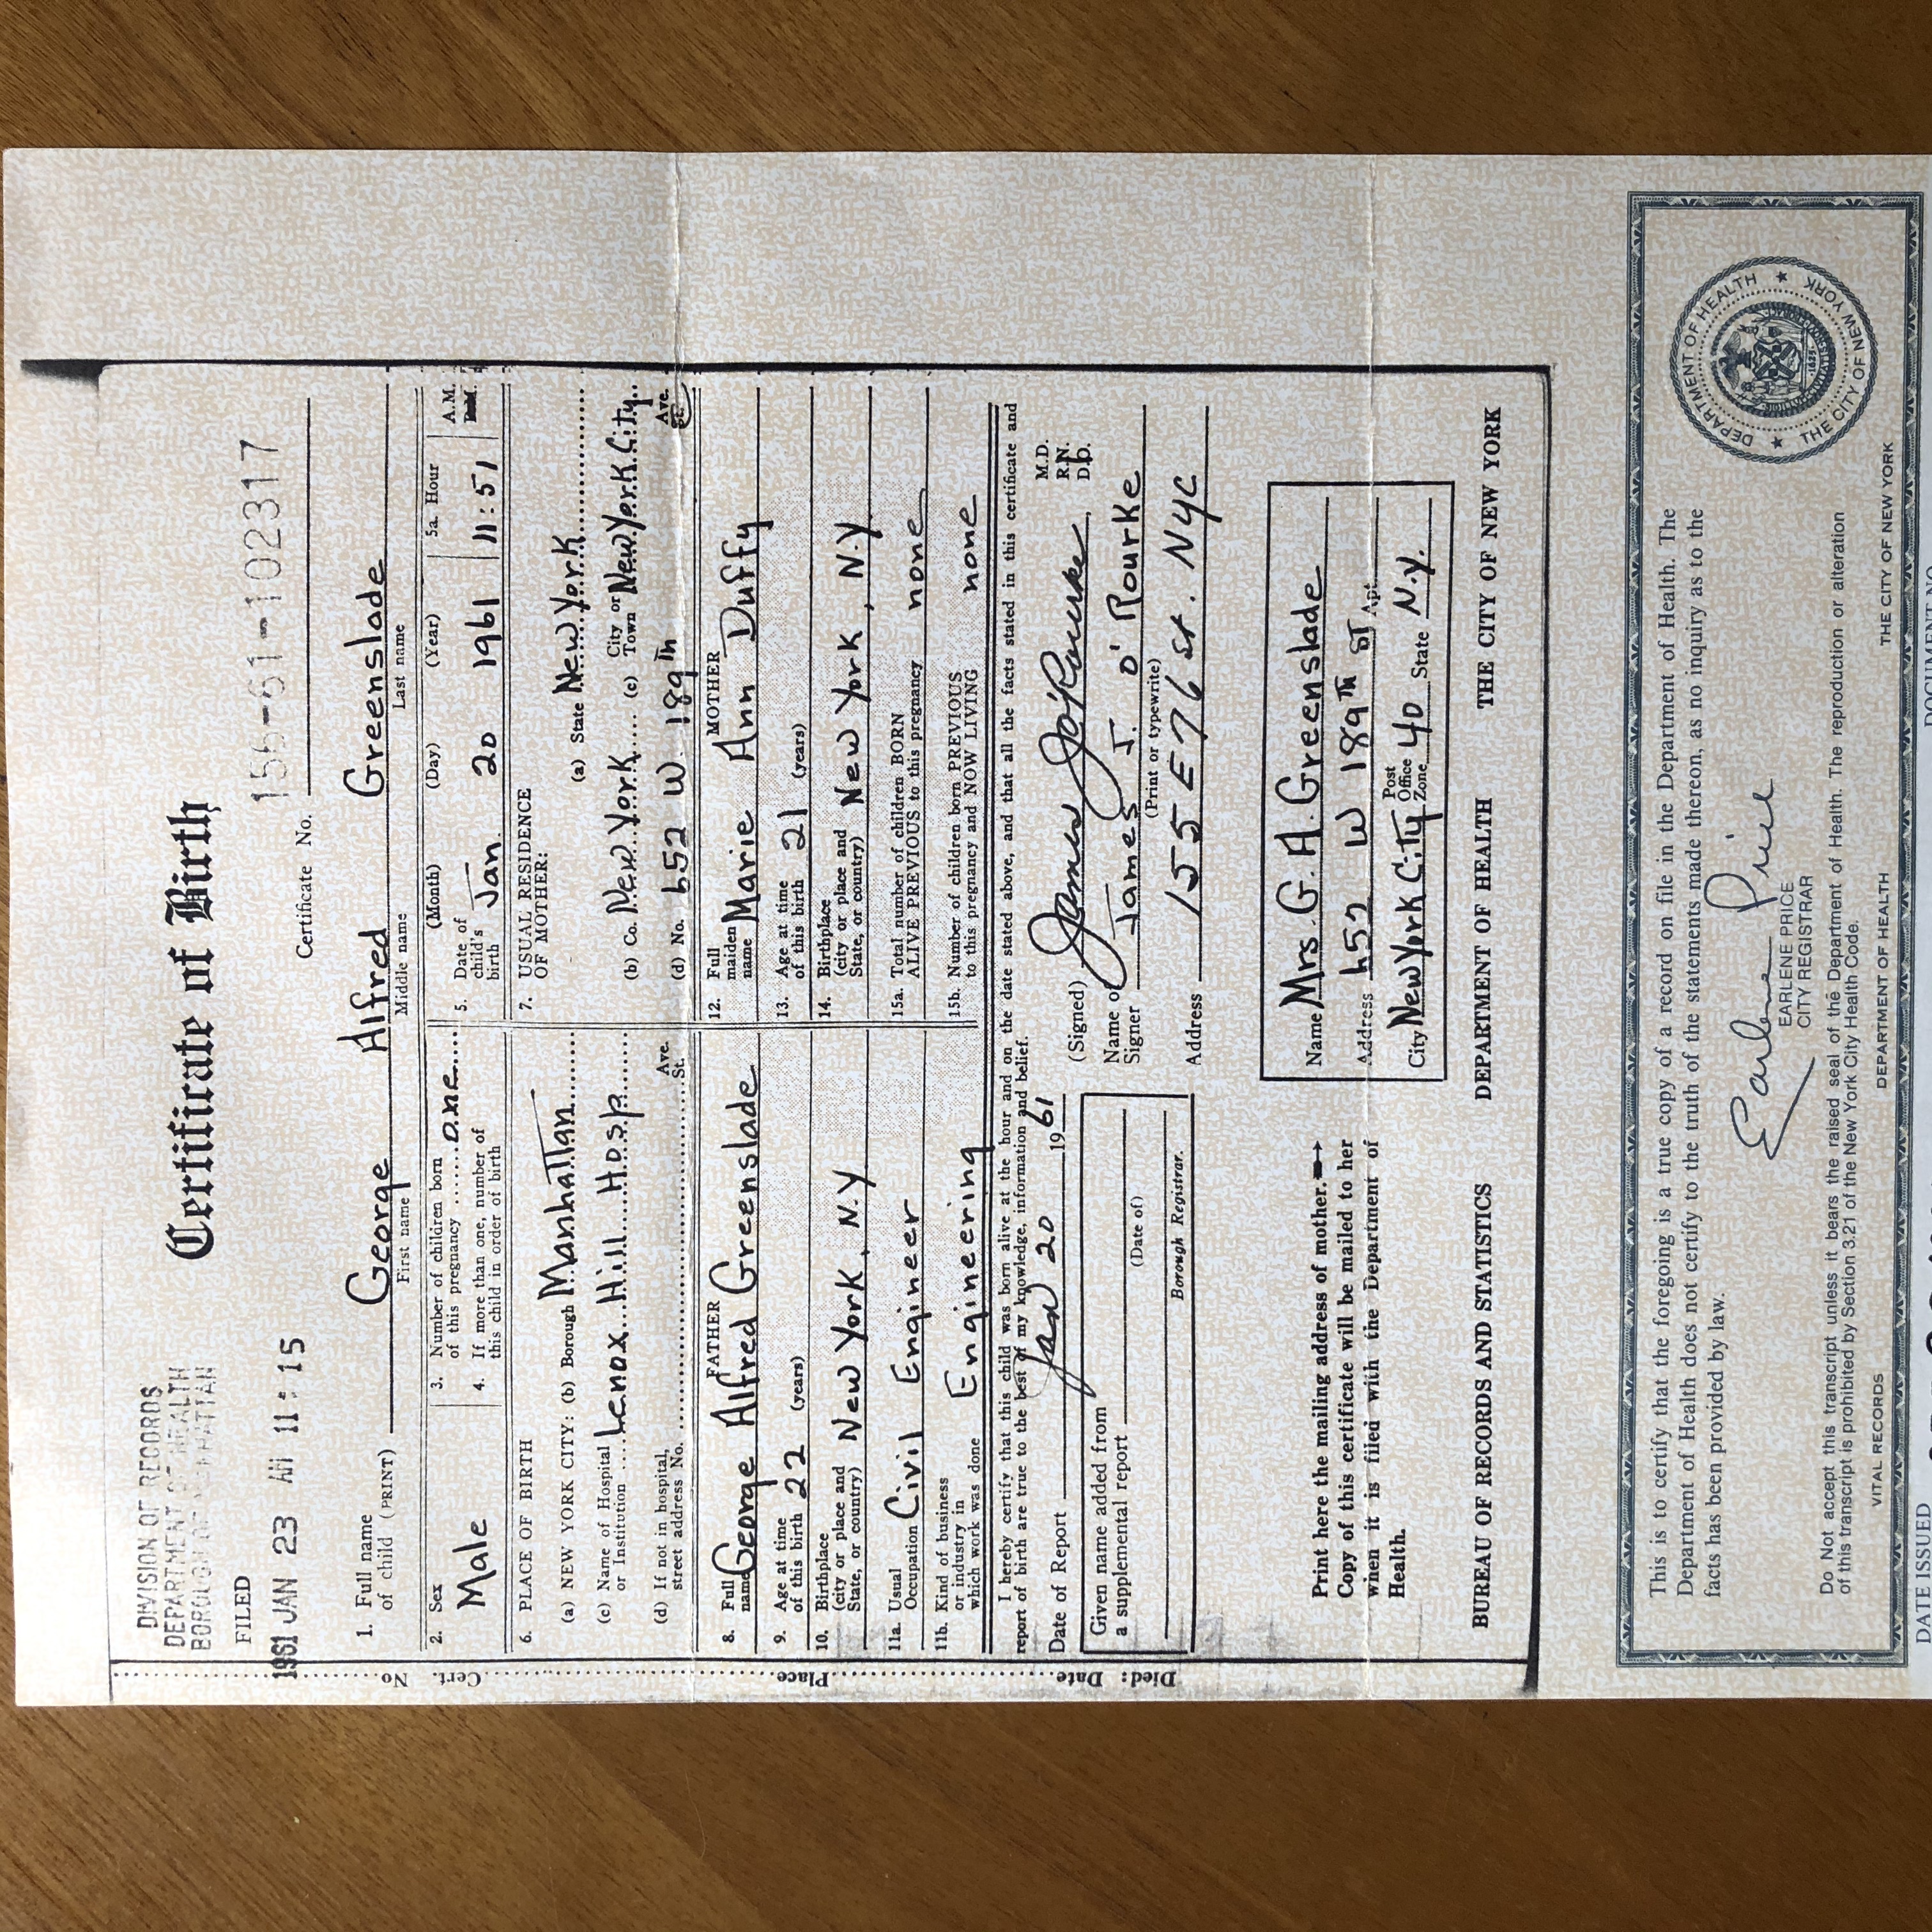 DIVISION OF RECORDS
DEPARTMENT OF HEALTH
BOROUGH OF MANHATTAN
Certificate of Birth
FILED
1961 JAN 23 AM 11:15
156-61-102317
Certificate No.
1. Full name
of child (PRINT) George Alfred Greenslade
First name Middle name Last name
2. Sex
Male
3. Number of children born
of this pregnancy ....... one
4. If more than one, number of
this child in order of birth
(Month) (Day) (Year) 5a. Hour
5. Date of
child's
birth Jan. 20 1961 11:51
A.M.
P.M.
6. PLACE OF BIRTH
(a) NEW YORK CITY: (b) Borough Manhattan
(c) Name of Hospital
or Institution .... Lenox Hill Hosp
(d) If not in hospital,
street address No. Ave.
St.
7. USUAL RESIDENCE
OF MOTHER:
(a) State New York
(b) Co. New York (c) City or
Town New York City
(d) No. 652 W. 189th Ave.
St.
FATHER
8. Full
name George Alfred Greenslade
9. Age at time
of this birth 22 (years)
10. Birthplace
(city or place and
State, or country) New York, N.Y
11a. Usual
Occupation Civil Engineer
11b. Kind of business
or industry in
which work was done Engineering
MOTHER
12. Full
maiden
name Marie Ann Duffy
13. Age at time
of this birth 21 (years)
14. Birthplace
(city or place and
State, or country) New York, N.Y
15a. Total number of children BORN
ALIVE PREVIOUS to this pregnancy none
15b. Number of children born PREVIOUS
to this pregnancy and NOW LIVING none
I hereby certify that this child was born alive at the hour and on the date stated above, and that all the facts stated in this certificate and
report of birth are true to the best of my knowledge, information and belief.
Date of Report Jan 20 1961
(Signed) James J O'Rourke
M.D.
R.N.
D.O.
Given name added from
a supplemental report
(Date of)
Borough Registrar.
Name of
Signer James J. O'Rourke
(Print or typewrite)
Address 155 E 76 St. NYC
Print here the mailing address of mother.
Copy of this certificate will be mailed to her
when it is filed with the Department of
Health.
Name Mrs. G. A. Greenslade
Address 652 W 189th ST Apt.
City New York City Post
Office
Zone 40 State N.Y.
BUREAU OF RECORDS AND STATISTICS DEPARTMENT OF HEALTH THE CITY OF NEW YORK
Died: Date Place Cert. No.
This is to certify that the foregoing is a true copy of a record on file in the Department of Health. The
Department of Health does not certify to the truth of the statements made thereon, as no inquiry as to the
facts has been provided by law.
Earlene Price
EARLENE PRICE
CITY REGISTRAR
Do Not accept this transcript unless it bears the raised seal of the Department of Health. The reproduction or alteration
of this transcript is prohibited by Section 3.21 of the New York City Health Code.
VITAL RECORDS DEPARTMENT OF HEALTH THE CITY OF NEW YORK
DEPARTMENT OF HEALTH
THE CITY OF NEW YORK
1625
DATE ISSUED
DOCUMENT NO.